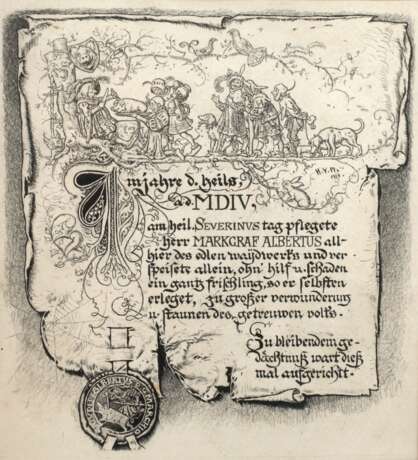 Im jahre d. heils,
ad. MDIV,
am heil. SEVERINUS tag pflegete
herr MARKGRAF ALBERTUS all-
hier des edlen waydwerks und ver-
speisete allein, ohn' hilf u. schaden
ein gantz frischling, so er selbsten
erleget, zu großer verwunderung
u. staunen des getreuwen volks.
Zu bleibendem ge-
dächtnuß wart dieß
mal aufgerichtt.
ALBERTUS